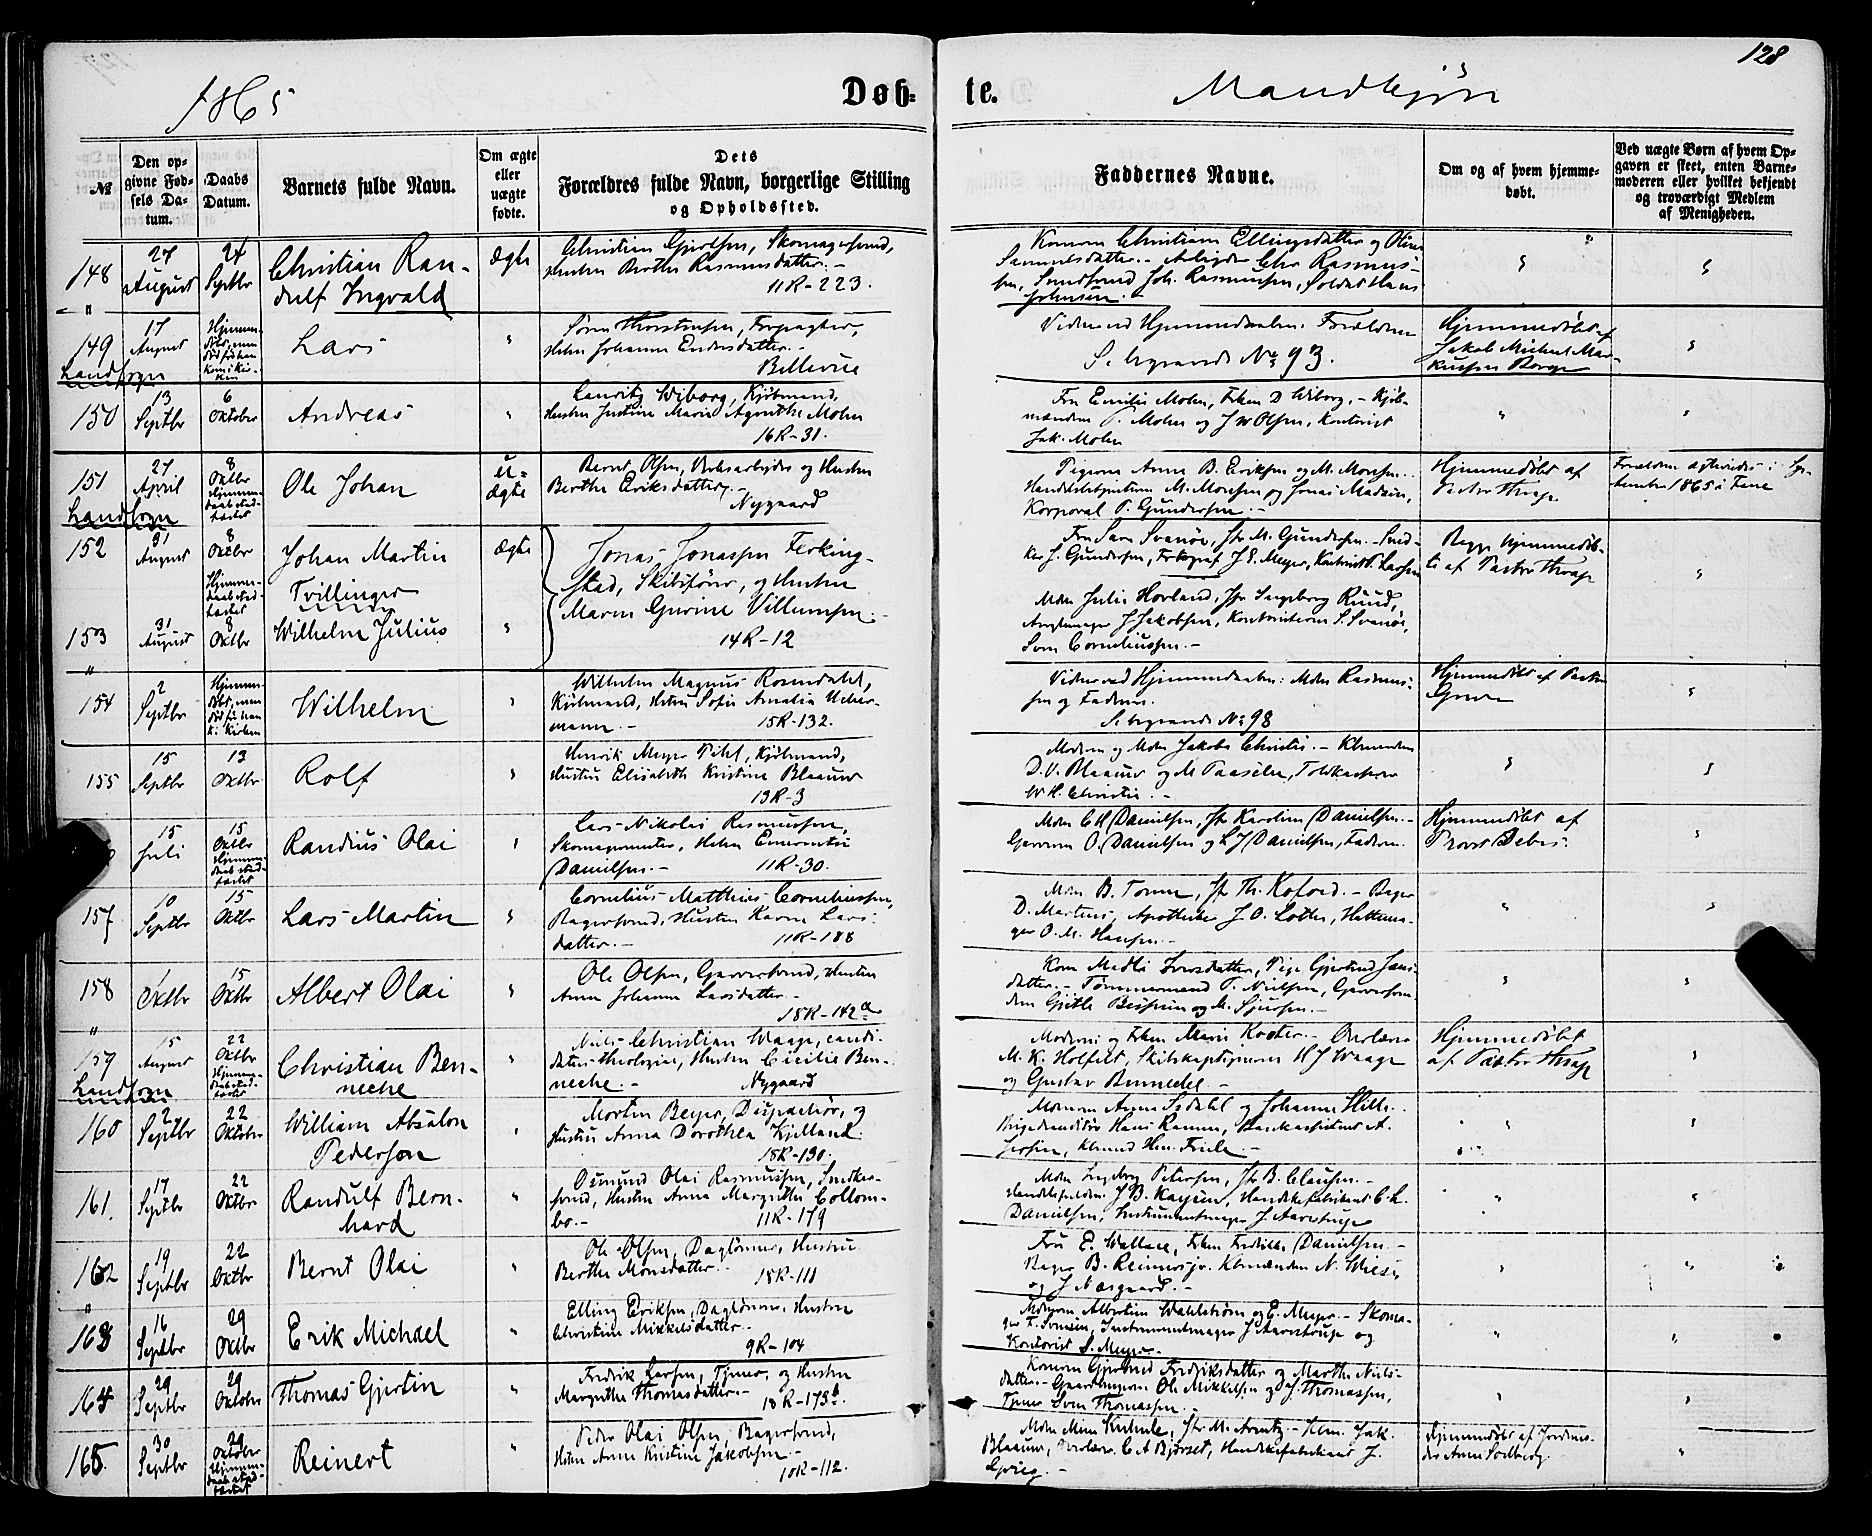 128
1865
Døb-
te.
Mandkjøn
№
Den op-
givne Fød-
sels Da-
tum.
Daabs
Datum.
Barnets fulde Navn.
Om ægte
eller
uægte
fødte.
Dets
Forældres fulde Navn, borgerlige Stilling
og Opholdssted.
Faddernes Navne.
Om og af hvem hjemme-
døbt.
Ved uægte Børn af hvem Op-
gaven er skeet, enten Barne-
moderen eller hvilket bekjendt
og troværdigt Medlem
af Menigheden.
148
27
August
24
Septbr
Christian Ran-
dulf Ingvald
Ægte
Christian Skomagersvend,
Hustru Berthe Rasmusdatter.-
11R-223.
Konerne Christiane Ellingsdatter og Oline
Samuelsdatter.- Arbeider Chr Rasmus-
sen, Joh. Rasmussen, Soldat Hans
Johnsen.-
149
Landsogn
17
August
Hjemme-
døbt, men
død før han
kom i Kir-
ken
Lars
Søren Thorstensen, Forpagter,
Hustru Johanne Endresdatter.-
Bellevue
Vidner ved Hjemmedaaben: Forældrene
S. begravede No 93.
Hjemmedøbt af
Jakob Michael Mar-
kussen Borge
150
13
Septbr
6
Oktober
Andreas
Lauritz Wiborg, Kjøbmand,
Hustru Justine Marie Agnethe Mohn
16R-31.
Fru Emilie Mohn, Frkn D Wiborg.- Kjøb-
mændene P. Mohn og J W Olsen, Kontorist
Jak. Mohn
151
Landsogn
27
April
8
Oktbr
Hjemme-
daab stad-
fæstet
Ole Johan
U-
ægte
Bernt Olsen, og Hustru
Berthe Eriksdatter.-
Nygaard
Pigerne Anna B. Eriksen og M. Monsen.-
Handelsbetjentene M. Monsen og Jonas Madsen,
Korporal P. Gundersen.-
Hjemmedøbt af
Pastor Thrap
Forældrene ægteviedes i Sep-
tember 1865 i Fane
152
31
August
8
Oktbr
Hjemme-
daab stad-
fæstet
Johan Martin
Tvillinger
Ægte
Jonas Jonassen Ferking-
stad, Skibsfører, og Hustru
Maren Gurine Villumsen.-
14R-12
Fru Sara Svanøe, Jfr M. Gundersen.- Sned-
ker J. Gundersen, Fotograf J E. Meyer, Kontorist P. Larsen
Begge hjemmedøb-
te af Pastor Thrap
153
31
August
8
Oktbr
Wilhelm Julius
Mdm Julie Hovland, Jfr Ingeborg Ruud,
J Jakobsen, Kontoristerne S. Svanøe,
Sven Corneliussen.-
154
2
Septbr
Hjemme-
døbt, men
død før han
k. i Kirken
Wilhelm
Wilhelm Magnus Rosendahl,
Kjøbmand, Hustru Sofie Amalia Ueher-
mann.-
15R-132.
Vidner ved Hjemmedaaben: Mdm Rasmus-
sen og Faderen.
S. begravede No 98
Hjemmedøbt af Pastor
Grieve
155
15
Septbr
13
Oktbr
Rolf
Henrik Meyer Pihl, Kjøbmand,
Hustru Elisabeth Kristine Blaauw
13R-3
Moderen og Mdm Jakobe Christie.- Kbmændene
D.V. Blaauw og M Paasche, Toldkasserer
W H. Christie.-
15
Juli
15
Oktbr
Hjemme-
daab stad-
fæstet
Randius Olai
Lars Nikolai Rasmussen,
Skomagermester, Hustru
Danielsen.-
11R-30.
Mdm C M Danielsen, Jfr Karoline Danielsen.-
Garverne O. Danielsen og L J Danielsen, Faderen.
Hjemmedøbt af
Provst Debes.
157
10
Septbr
15
Oktbr
Lars Martin
Cornelius Matthias Corneliussen,
Bagersvend, Hustru Karen Lars-
datter.-
11R-188
Mdm B. Tonne, Jfr Th. Kofoed.- Bager
D. Martens, Apotheker J. O. Lotter, Hattema-
ger O. M. Hansen.-
158
1
Oktbr
15
Oktbr
Albert Olai
Ole Olsen, Garversvend, Hustru
Anne Johanne Larsdatter.-
18R-142a
Kone Iversdatter, Pige Gjertrud Jans-
datter.- Tømmermand P. Nielsen, Garversven-
dene og M. Sjursen.-
159
Landsogn
15
August
22
Oktbr
Hjemme-
daab stad-
fæstet
Christian Ben-
neche
Niels Christian Waage, candi-
datus theologiæ, Hustru Cecilie Ben-
neche.-
Nygaard
Moderen og Frkn Marie Koster.- Overlærer
M. K. Holfeldt, Skibskaptejnerne H J Waage
og Gustav
Hjemmedøbt
af Pastor Thrap
160
2
Septbr
22
Oktober
William Absalon
Pederson
Morten Beyer, Dispachør, og
Hustru Anna Dorothea Kjelland.
18R-130.
Mdmne Anna Isdahl og Johanne
Hans Rannen, Bankassistent A.
Jersin, Kbmand Hm. Friele.-
161.
17
Septbr
22
Oktober
Randulf Bern-
hard
Osmund Olai Rasmussen, Snedker-
svend, Hustru Anna Margrethe Collom-
bo.-
11R-179
Mdm Ingeborg Petersen, Jfr B. Clausen.-
J B. Kaysen, Handskefabrikant C. L.
Danielsen, Instrumentmager J. Aarestrup
162
19
Septbr
22
Oktbr
Bernt Olai
Ole Olsen, Daglønner, Hustru
Berthe Monsdatter.-
18R-111
Fru E. Wallace, Frkn Fredrikke Danielsen.-
Bager B. Reimers jr. Kbmændene N. Wiese,
og J Næsgaard.-
163
16
Septbr
29
Oktbr
Erik Michael
Elling Eriksen, Daglønner, Hustru
Christine Mikkelsdatter.-
9R-104
Mdmne Albertine Wahlstrøm og E. Meyer.- Skoma-
ger T. Svensen, Instrumentmager J Aarestrup og
Kontorist S. Meyer.-
164
29
Septbr
29
Oktober
Thomas Gjertin
Fredrik Larsen, Tjener, og Hustru
Margrethe Thomasdatter.-
18R-173b.
Konerne Gjertrud Fredriksdatter og Marthe Niels-
datter.- Ole Mikkelsen og J. Thomassen,
Tjener Sven Thomassen.-
165
30
Septbr
29
Oktober
Hjemme-
daab stad-
fæstet
Reinert
Peder Olai Olsen, Bagersvend,
Hustru Anne Kristine Jakobsen.-
10R-112.
Mdm Mine Kuhnle, Jfr M. Arentz.- Kbm. Jak.
Blaauw, Overlærer C. A Bjørset, Handskefabrikant J.
Grieg.-
Hjemmedøbt af Jordmo-
der Anne Solberg.